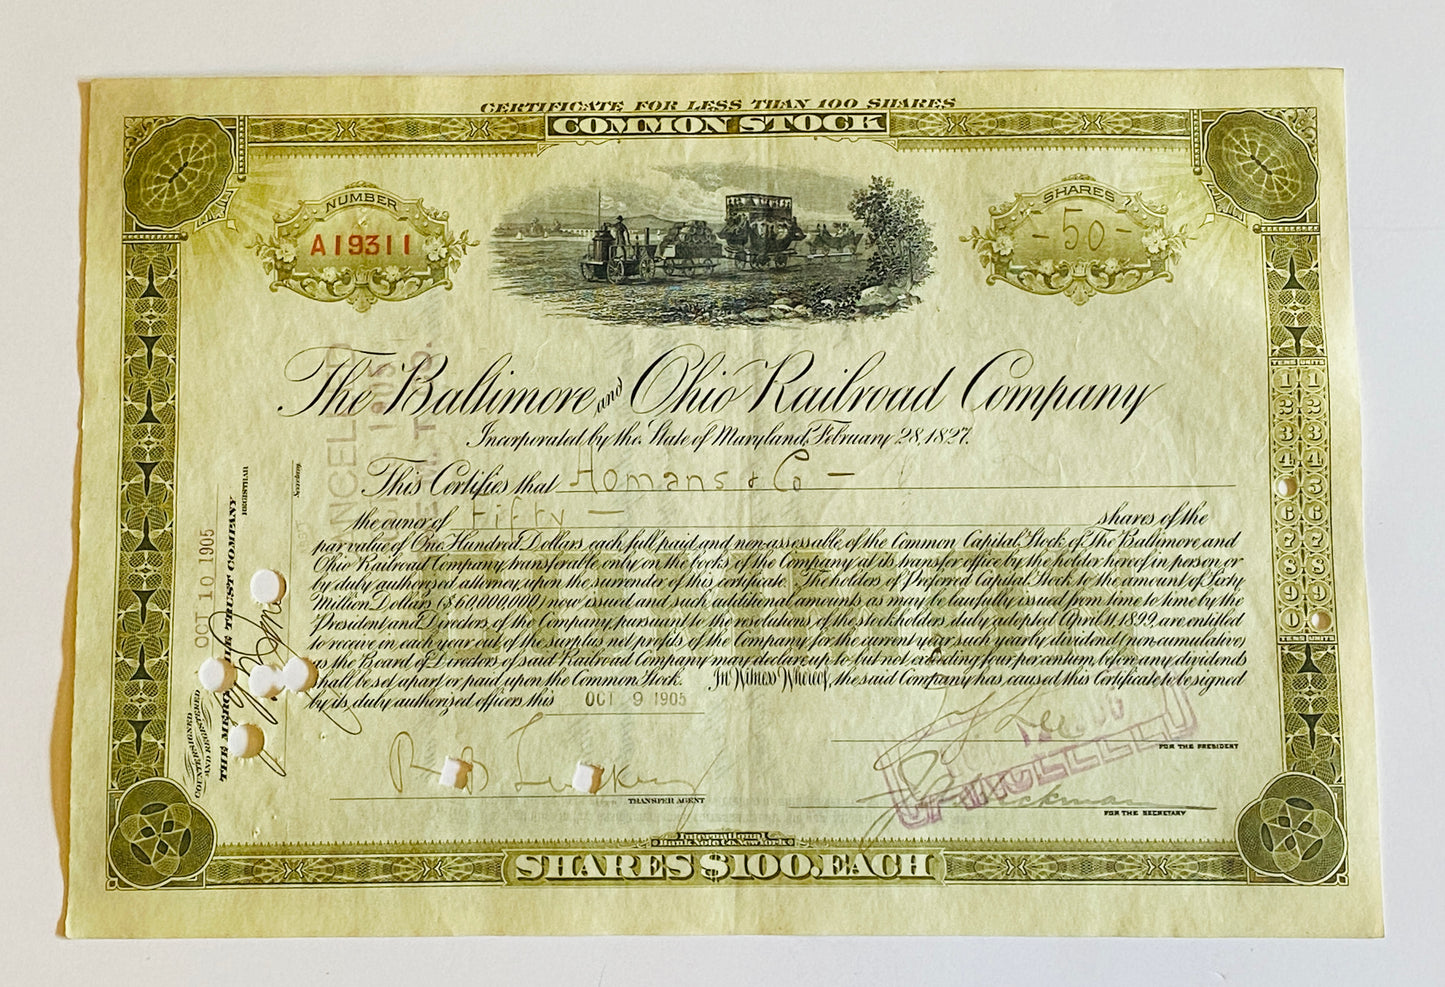 CERTIFICATE FOR LESS THAN 100 SHARES
COMMON STOCK
NUMBER
A19311
SHARES
-50-
The Baltimore and Ohio Railroad Company
Incorporated by the State of Maryland, February 28, 1827.
This Certifies that Homans & Co -
the owner of Fifty - shares of the
par value of One Hundred Dollars each, full paid and non-assessable, of the Common Capital Stock of The Baltimore and
Ohio Railroad Company, transferable only on the books of the Company at its transfer office by the holder hereof in person or
by duly authorized attorney upon the surrender of this certificate. The holders of Preferred Capital Stock to the amount of Sixty
Million Dollars ($60,000,000) now issued and such additional amounts as may be lawfully issued from time to time by the
President and Directors of the Company, pursuant to the resolutions of the stockholders duly adopted April 11, 1899, are entitled
to receive in each year out of the surplus net profits of the Company for the current year such yearly dividend (non-cumulative)
as the Board of Directors of said Railroad Company may declare, up to but not exceeding four per centum, before any dividends
shall be set apart or paid upon the Common Stock. In Witness Whereof, the said Company has caused this Certificate to be signed
by its duly authorized officers this OCT 9 1905
TRANSFER AGENT
FOR THE PRESIDENT
FOR THE SECRETARY
CANCELLED
COUNTERSIGNED
AND REGISTERED
OCT 10 1905
THE TRUST COMPANY
REGISTRAR
Secretary.
TENS UNITS
1 1
2 2
3 3
4 4
5
6 6
7 7
8 8
9 9
0
TENS UNITS
International
Bank Note Co. New York
SHARES $100. EACH